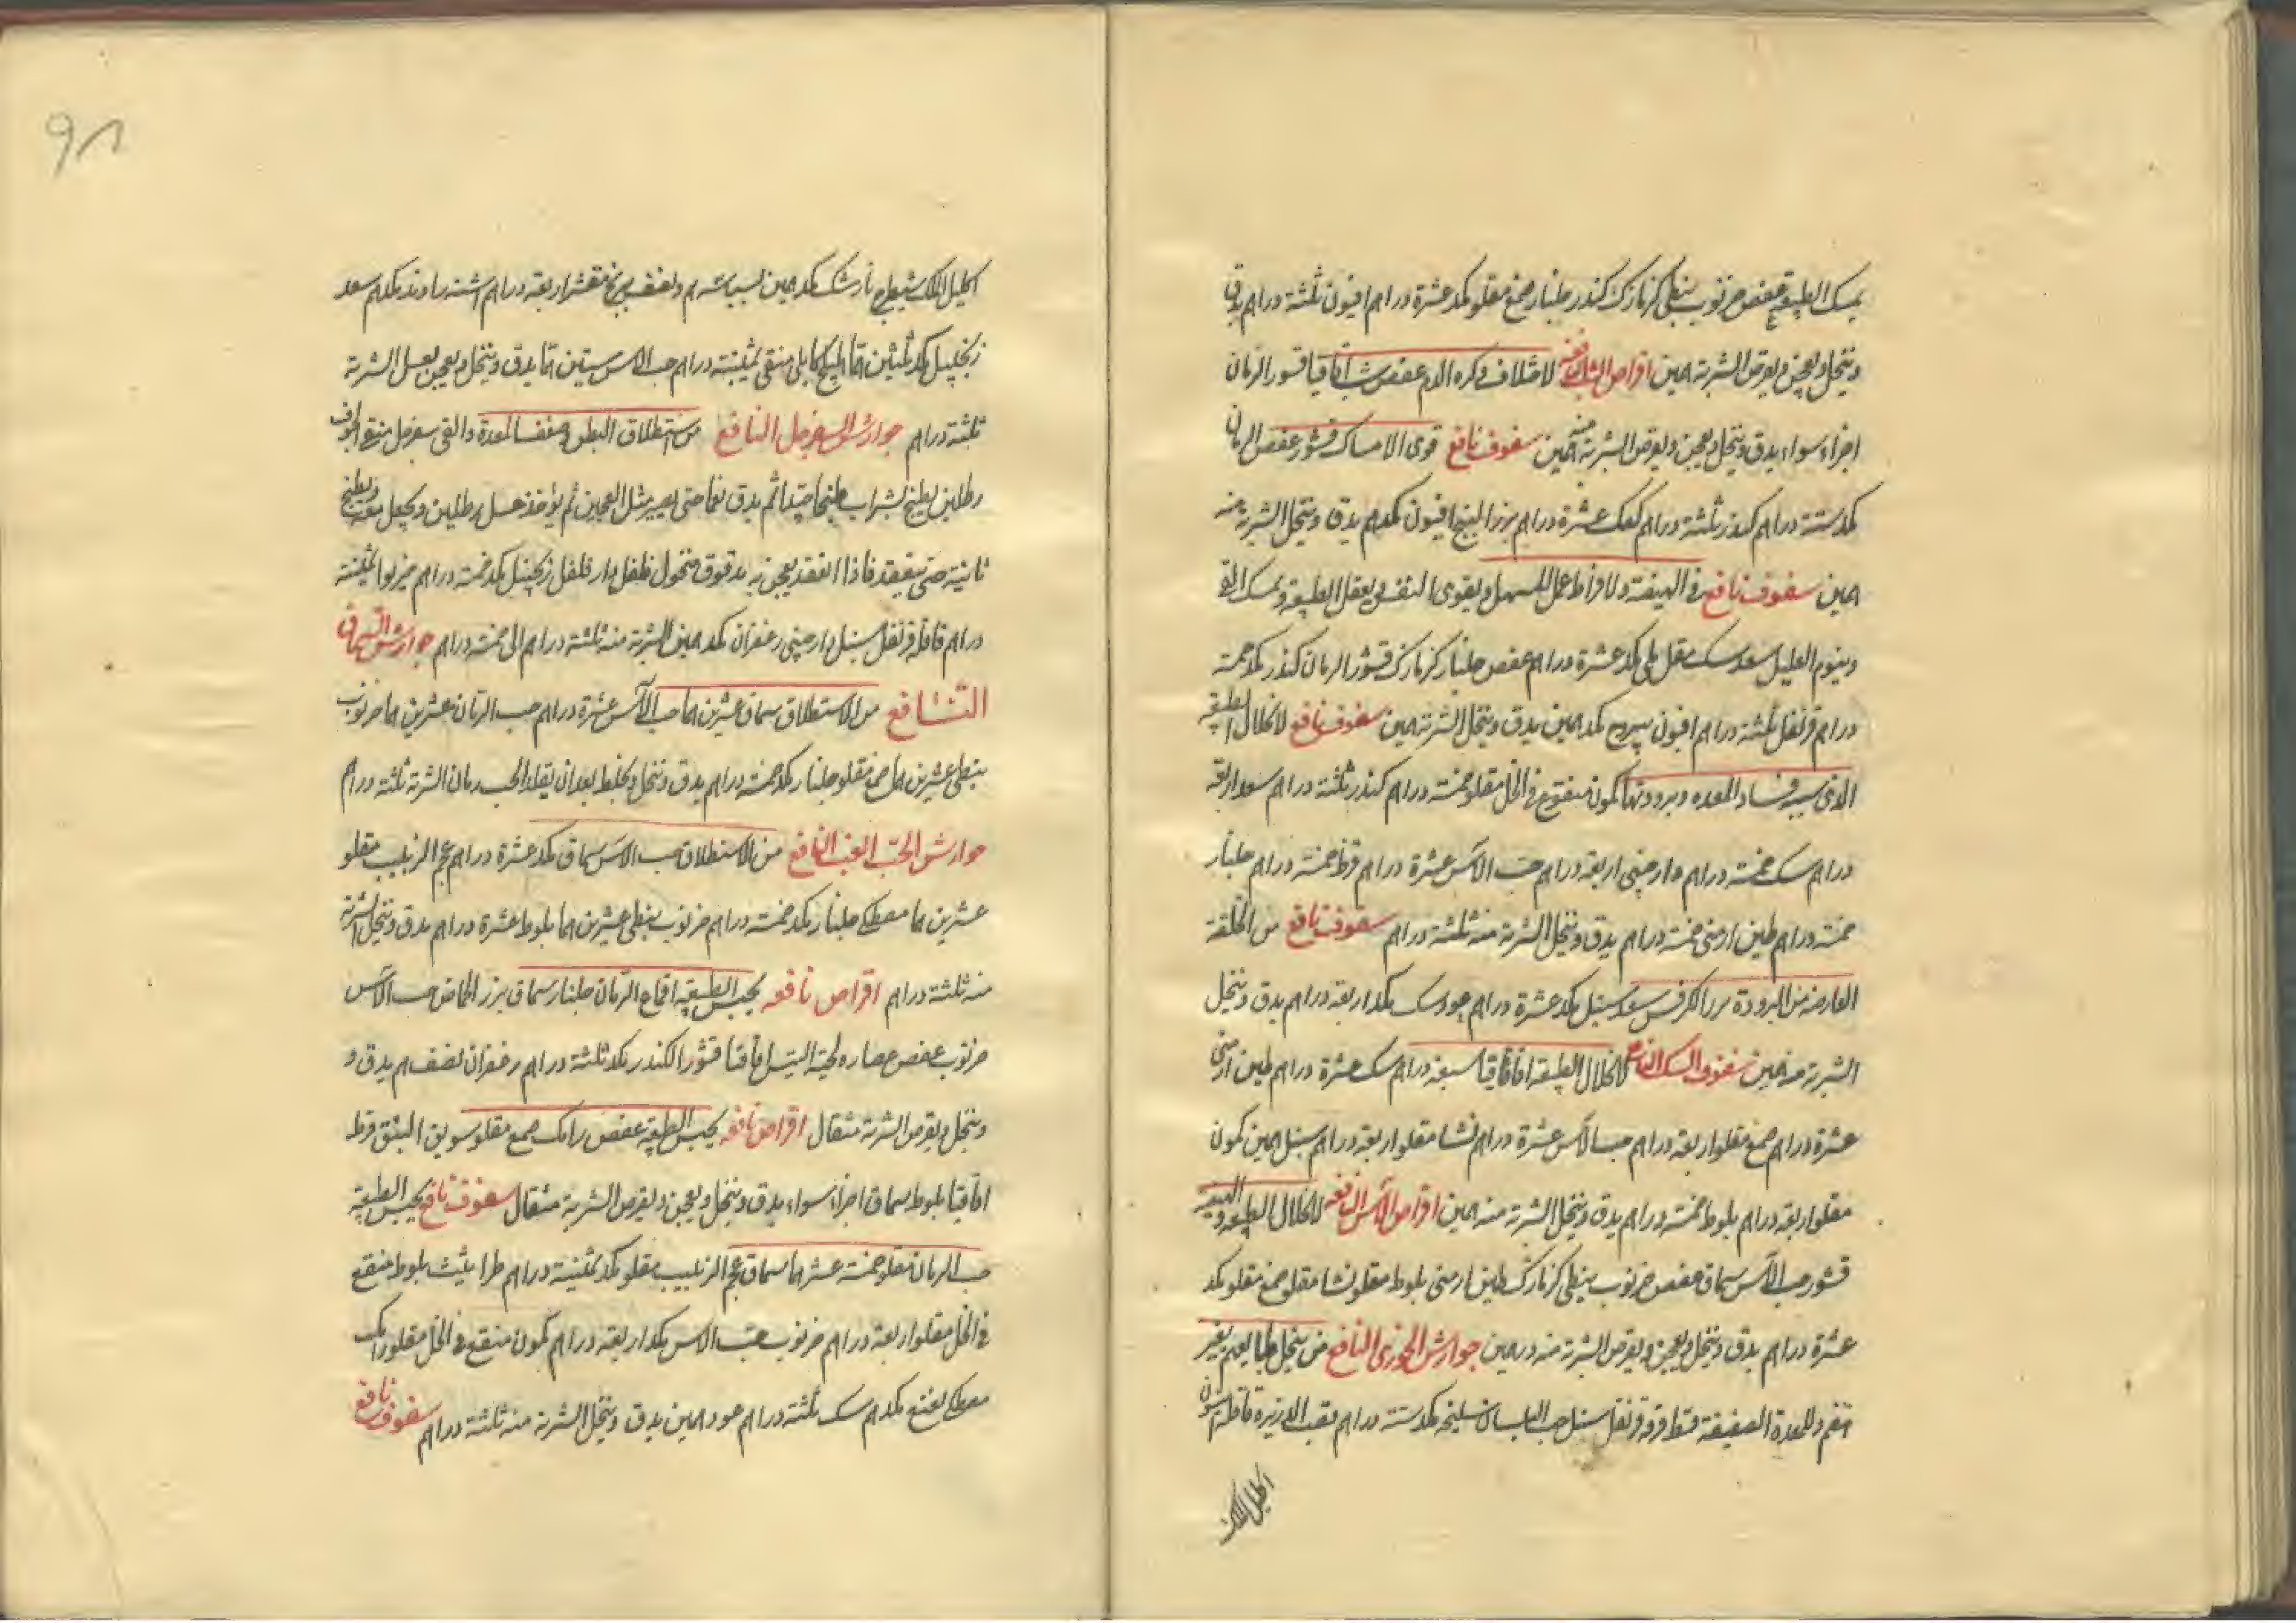 يمسك الطبيعة عفص خرنوب نبطى كزمازك كندر جلنار صمغ مقلو بكد عشرة دراهم افيون ثلثة دراهم يدق
وينخل ويعجن ويقرص الشربة درهمين اقراص الشب النافعة لاختلاف وكره الدم عفص شب اقاقيا قشور الرمان
اجزاء سواء يدق وينخل ويعجن ويقرص الشربة منه درهمين سفوف نافع قوى الامساك قشور عفص الرمان
بكد ستة دراهم كندر ثلثة دراهم كعك عشرة دراهم بزر البنج افيون بكدهم يدق وينخل الشربة منه
درهمين سفوف نافع فى الهيضة ولافراط عمل المسهل ويقوى النفس ويعقل الطبيعة ويمسك القى
وينوم العليل سعد سك مقل مكى بكد عشرة دراهم عفص جلنار كزمازك قشور الرمان كندر بكد خمسة
دراهم قرنفل ثلثة دراهم افيون بكد درهمين يدق وينخل الشربة درهمين سفوف نافع لانحلال الطبيعة
الذى سببه فساد المعده وبرودتها كمون منقوع فى الخل مقلو خمسة دراهم كندر ثلثة دراهم سعد اربعة
دراهم سك خمسة دراهم دارصينى اربعة دراهم حب الآس عشرة دراهم قرظ خمسة دراهم جلنار
خمسة دراهم طين ارمنى خمسة دراهم يدق وينخل الشربة منه ثلثة دراهم سفوف نافع من الخلفة
العارضه من البرودة بزر الكرفس سعد سنبل بكد عشرة دراهم عود سك بكد اربعة دراهم يدق وينخل
الشربة منه درهمين سفوف السك النافع لانحلال الطبيعة اقاقيا سبعة دراهم سك عشرة دراهم طين ارمنى
عشرة دراهم صمغ مقلو اربعة دراهم حب الآس عشرة دراهم نشا مقلو اربعة دراهم سنبل درهمين كمون
مقلو اربعة دراهم بلوط خمسة دراهم يدق وينخل الشربة منه درهمين اقراص الآس النافعة لانحلال الطبيعة والهيضة
قشور حب الآس سماق عفص خرنوب نبطى كزمازك طين ارمنى بلوط مقلو نشا مقلو صمغ مقلو بكد
عشرة دراهم يدق وينخل ويعجن ويقرص الشربة منه درهمين جوارش الخوزى النافع من ينحل طبايعهم بغير
هضم وللمعدة الضعيفة قسط قرفة قرنفل سنبل حب البلسان سليخه بكد ستة دراهم قصب الذريرة قاقلة اشنة
اكليل الملك
اكليل الملك شيطرج نارمشك بكد درهمين بسباسة درهم ونصف مقشر اربعة دراهم اشنه راوند بكدهم سعد
زنجبيل بكد ثلثين درهما هليلج كابلى منقى ثمنية دراهم حب الآس ستين درهما يدق وينخل ويعجن بعسل الشربة
ثلثة دراهم جوارش السفرجل النافع من استطلاق البطن وضعف المعدة والقى سفرجل منقى الجوف
رطلين يطبخ بشراب طبخا جيدا ثم يدق نعما حتى يصير مثل العجين ثم يؤخذ عسل رطلين ويجعل معه ويطبخ
ثانية حتى ينعقد فاذا انعقد يعجن به مدقوق منخول فلفل دار فلفل زنجبيل بكد خمسة دراهم خيربوا ثمنية
دراهم قاقلة قرنفل سنبل دارصينى زعفران بكد درهمين الشربة منه ثلثة دراهم الى خمسة دراهم جوارش السماق
النافع من الاستطلاق سماق عشرين درهما حب الآس عشرة دراهم حب الرمان عشرين درهما خرنوب
نبطى عشرين درهما صمغ مقلو جلنار بكد خمسة دراهم يدق وينخل ويخلط بعد ان يقلا الحب رمان الشربة ثلثة دراهم
جوارش الحب العنب النافع من الاستطلاق حب الآس سماق بكد عشرة دراهم عجم الزبيب مقلو
عشرين درهما مصطكى جلنار بكد خمسة دراهم خرنوب نبطى عشرين درهما بلوط عشرة دراهم يدق وينخل الشربة
منه ثلثة دراهم اقراص نافعه يحبس الطبيعة اقماع الرمان جلنار سماق بزر الحماض حب الآس
خرنوب عفص عصاره لحية التيس اقاقيا قشور الكندر بكد ثلثة دراهم زعفران نصف درهم يدق و
وينخل ويقرص الشربة مثقال اقراص نافعه يحبس الطبيعة عفص رامك صمغ مقلو سويق النبق قرظ
اقاقيا بلوط سماق اجزاء سواء يدق وينخل ويعجن ويقرص الشربة مثقال سفوف نافع يحبس الطبيعة
حب الرمان مقلو خمسة عشر درهما سماق عجم الزبيب مقلو بكد ثمنية دراهم طراثيث بلوط منقع
فى الخل مقلو اربعة دراهم خرنوب حب الآس بكد اربعة دراهم كمون منقع فى الخل مقلو رامك
مصطكى نعنع بكدهم سك ثلثة دراهم عود درهمين يدق وينخل الشربة منه ثلثة دراهم سفوف نافع